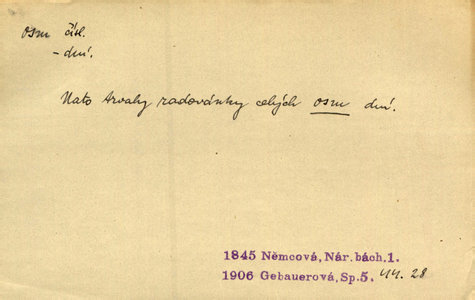 osm čísl.
- dní.
Nato trvaly radovánky celých osm dní.
1845 Němcová, Nár. bách. 1.
1906 Gebauerová, Sp. 5. 44. 28